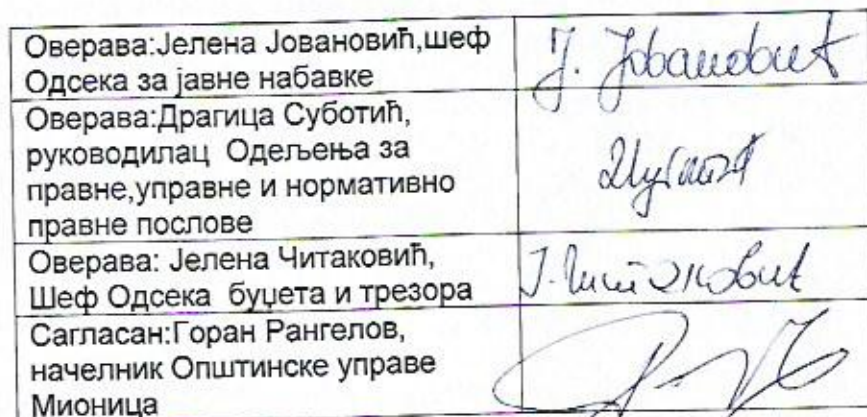 Оверава:Јелена Јовановић,шеф
Одсека за јавне набавке
Ј. Јовановић
Оверава:Драгица Суботић,
руководилац Одељења за
правне,управне и нормативно
правне послове
Оверава: Јелена Читаковић,
Шеф Одсека буџета и трезора
Ј. Читаковић
Сагласан:Горан Рангелов,
начелник Општинске управе
Мионица